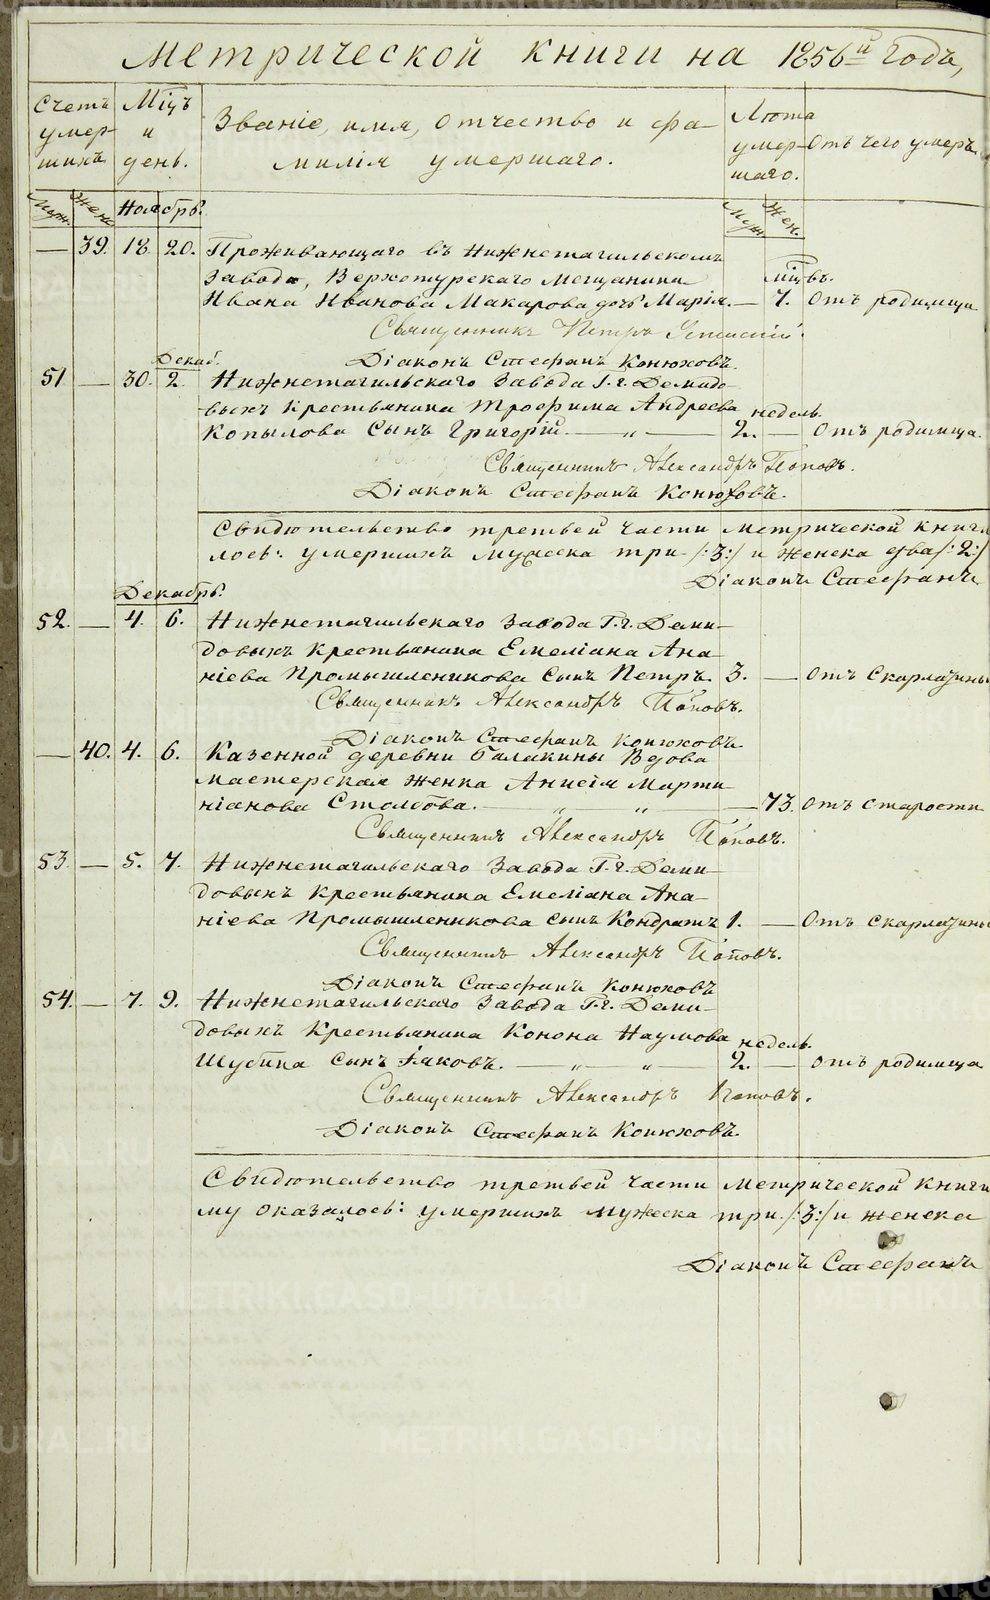 Метрической книги на 1856й годъ,
Счетъ умершихъ
Мцъ и день.
Званіе, имя, отчество и фамилія умершаго.
Лѣта умершаго.
Отъ чего умеръ.
Муж. Жен. Ноябрь. Муж. Жен.
— 39. 18 20. Проживающаго въ Нижнетагильскомъ
Заводѣ, Верхотурскаго мещанина мцвъ.
Ивана Иванова Макарова дочь Марія. — 7. Отъ родимца
Священникъ Петръ
Діаконъ Стефанъ Конюховъ.
Декаб.
51 — 30. 2. Нижнетагильскаго Завода Г.г. Демидо-
выхъ Крестьянина Трофима Андреева недель.
Копылова Сынъ Григорій. — „ — 2. — Отъ родимца.
Священникъ Александръ Поповъ.
Діаконъ Стефанъ Конюховъ.
Свидѣтельство третьей части метрической книги
лось: умершихъ мужеска три /:3:/ и женска два /:2:/
Діаконъ Стефанъ
Декабрь.
52. — 4. 6. Нижнетагильскаго Завода Г.г. Деми-
довыхъ Крестьянина Емеліана Ана-
ніева Промышленникова Сынъ Петръ. 3. — Отъ Скарлатины
Священникъ Александръ Поповъ.
Діаконъ Стефанъ Конюховъ
— 40. 4. 6. Казенной деревни Балакины Вдова
мастерская женка Анисія Марти-
ніанова Столбова. — „ „ — 73. Отъ старости
Священникъ Александръ Поповъ.
53. — 5. 7. Нижнетагильскаго Завода Г.г. Деми-
довыхъ Крестьянина Емеліана Ана-
ніева Промышленникова сынъ Кондратъ 1. — Отъ скарлатины
Священникъ Александръ Поповъ.
Діаконъ Стефанъ Конюховъ
54. — 7. 9. Нижнетагильскаго Завода Г.г. Деми-
довыхъ Крестьянина Конона Наумова недель.
Шубина сынъ Іаковъ. — „ — „ — 2. — Отъ родимца
Священникъ Александръ Поповъ.
Діаконъ Стефанъ Конюховъ.
Свидѣтельство третьей части Метрической книги
му оказалось: умершихъ мужеска три /:3:/ и женска
Діаконъ Стефанъ
METRIKI.GASO-URAL.RU